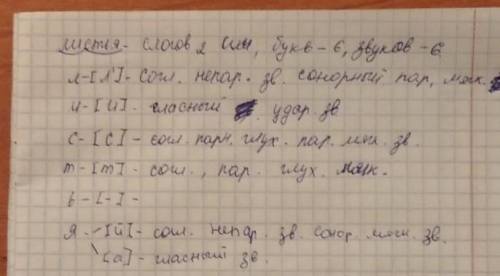 листья - слогов 2 , букв - 6, звуков - 6
л - [л'] - согл. непар. зв. сонорный пар, мягк.
и - [и] - гласный удар. зв
с - [с] - согл. парн. глух. пар. мягк. зв.
т - [т] - согл., пар. глух. мягк.
ь - [-] -
я - [й] - согл. непар. зв. сонор. мягк. зв.
[а] - гласный зв.